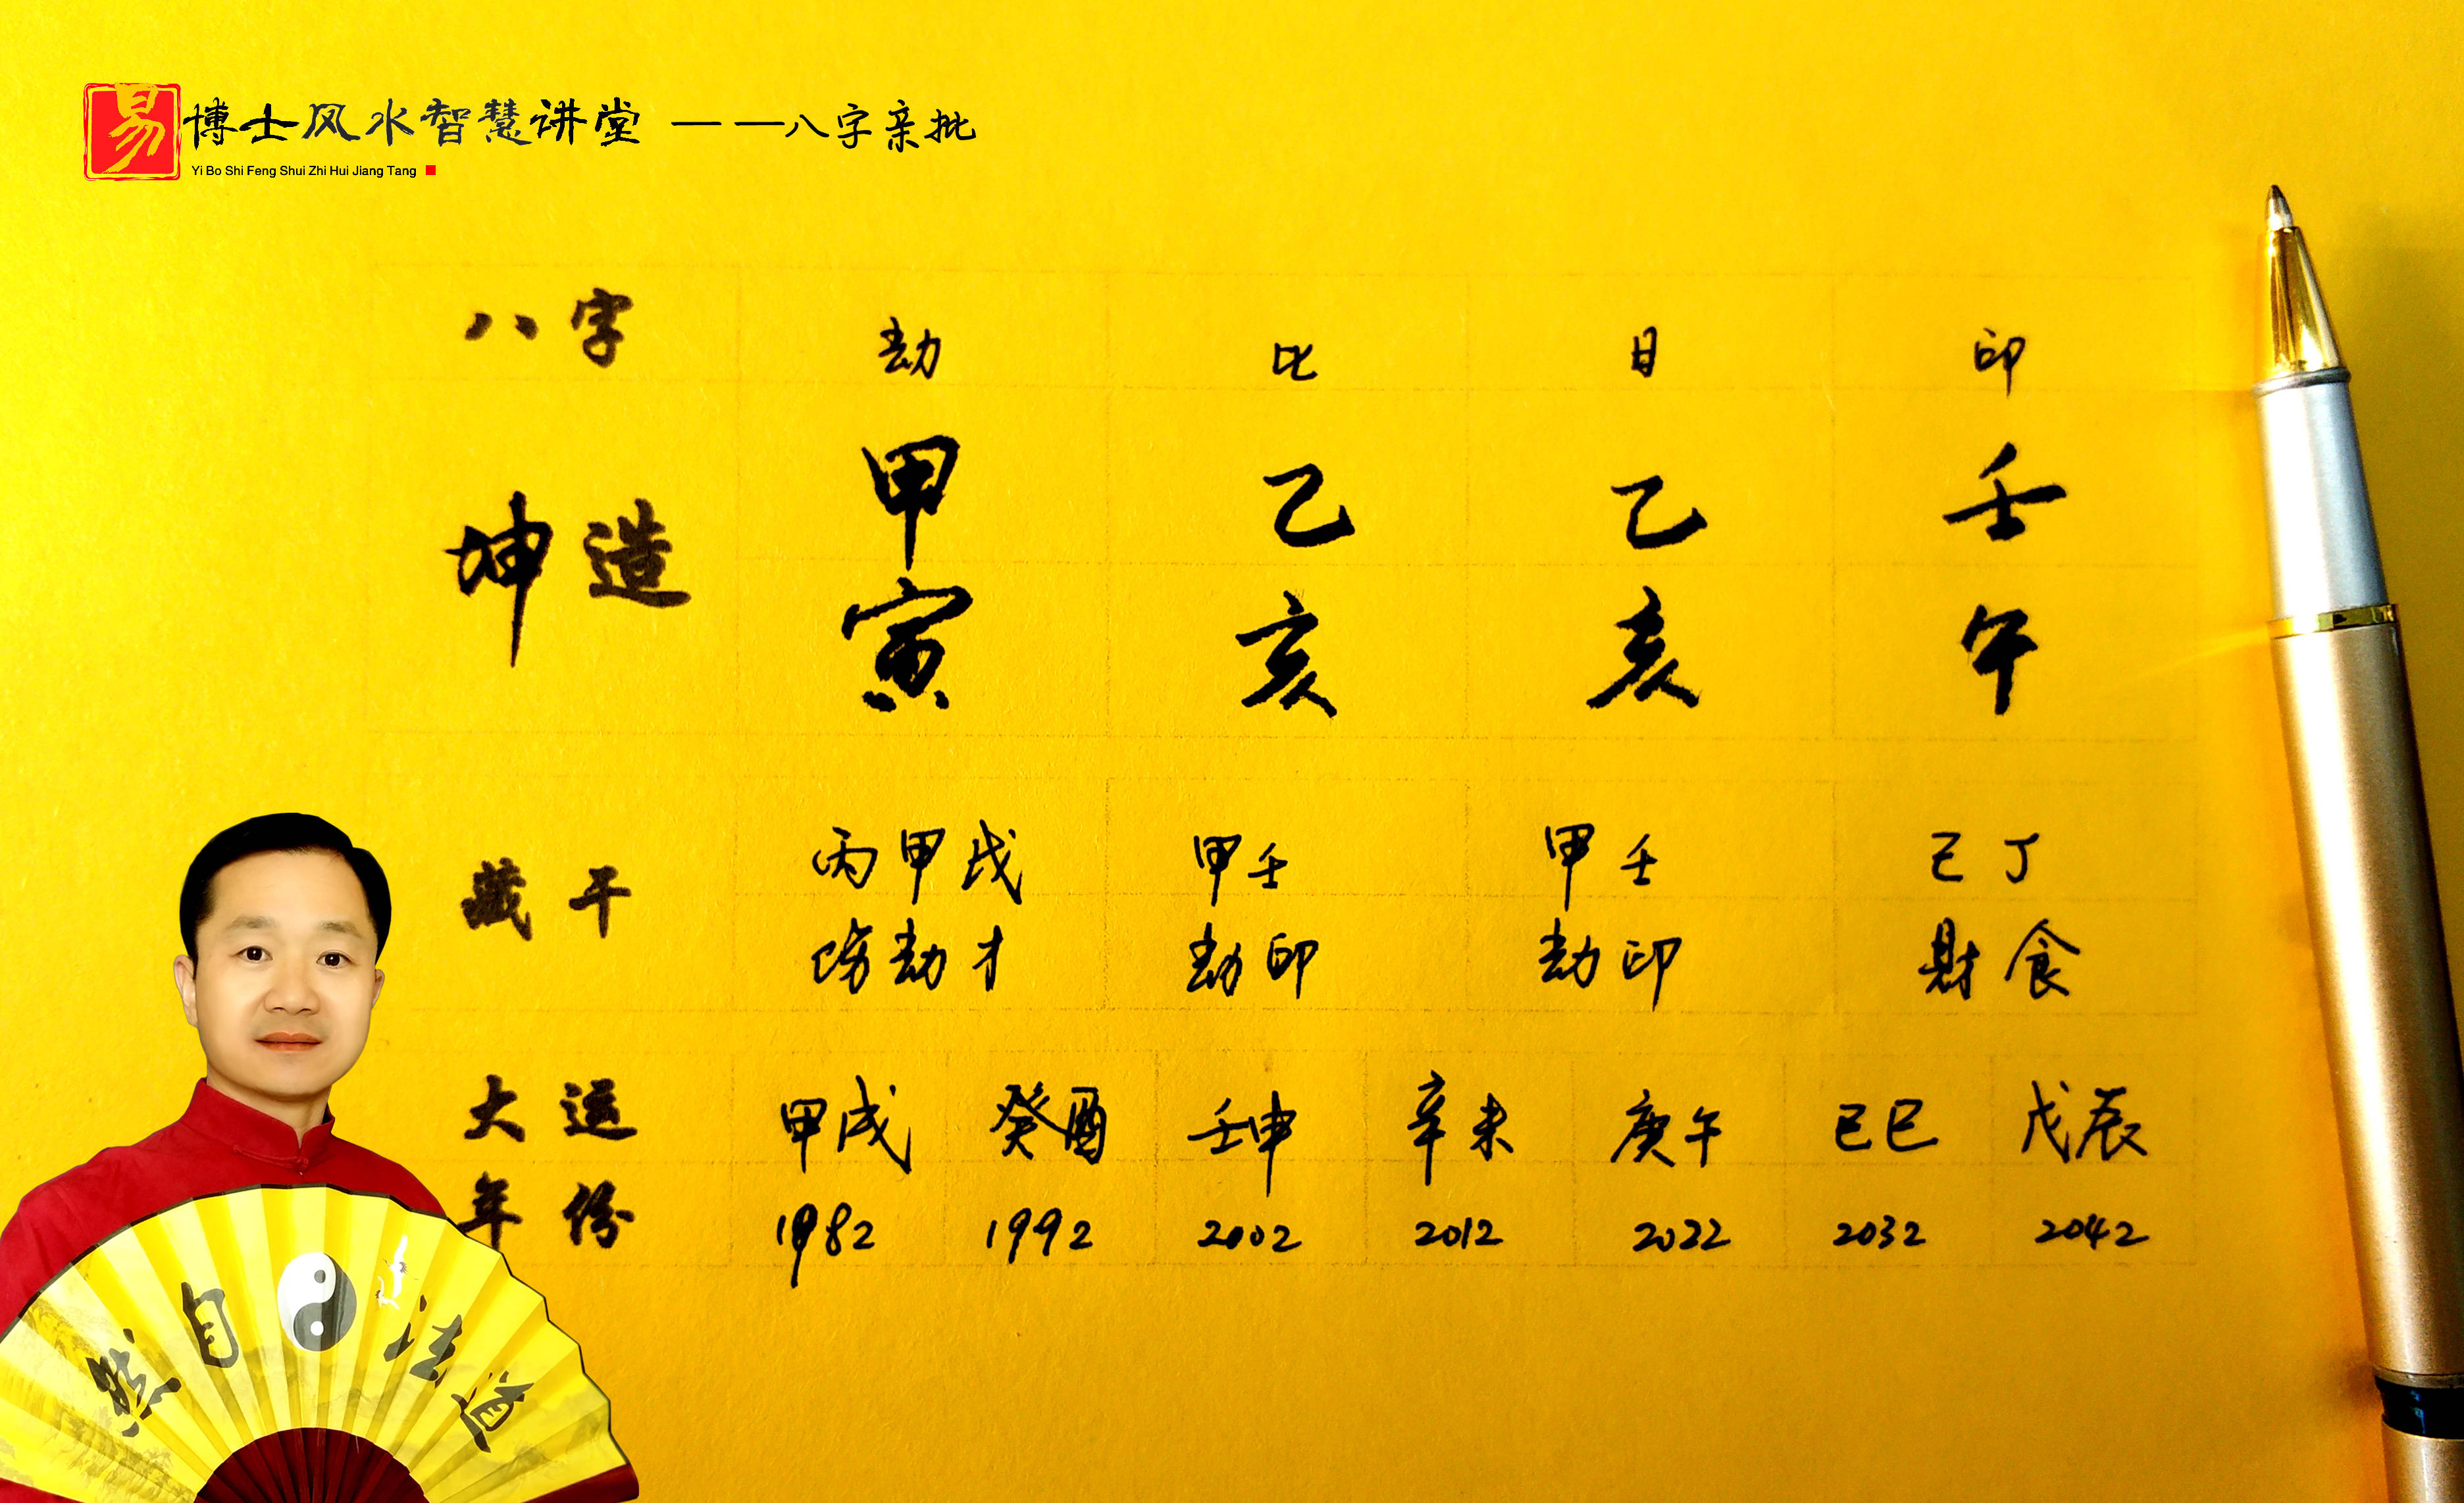 易博士风水智慧讲堂 ——八字亲批
Yi Bo Shi Feng Shui Zhi Hui Jiang Tang
八字 劫 比 日 印
坤造 甲 乙 乙 壬
寅 亥 亥 午
藏干 丙甲戊 甲壬 甲壬 己丁
伤劫才 劫印 劫印 财食
大运 甲戌 癸酉 壬申 辛未 庚午 己巳 戊辰
年份 1982 1992 2002 2012 2022 2032 2042
然自法道